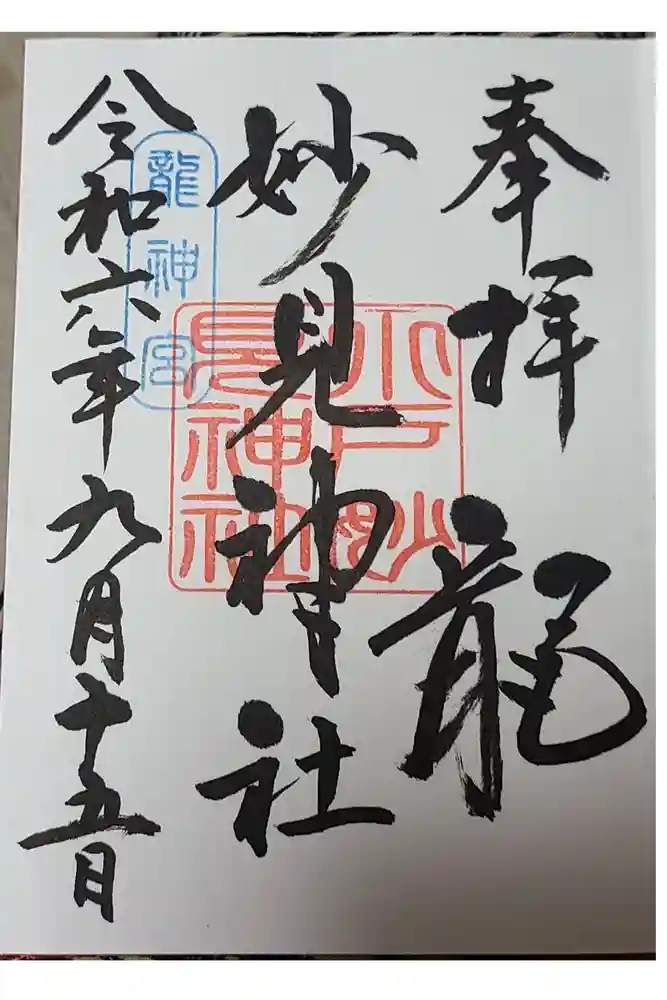 奉拝 龍
妙見神社
令和六年九月十五日
小戸妙
見神社
龍神宮